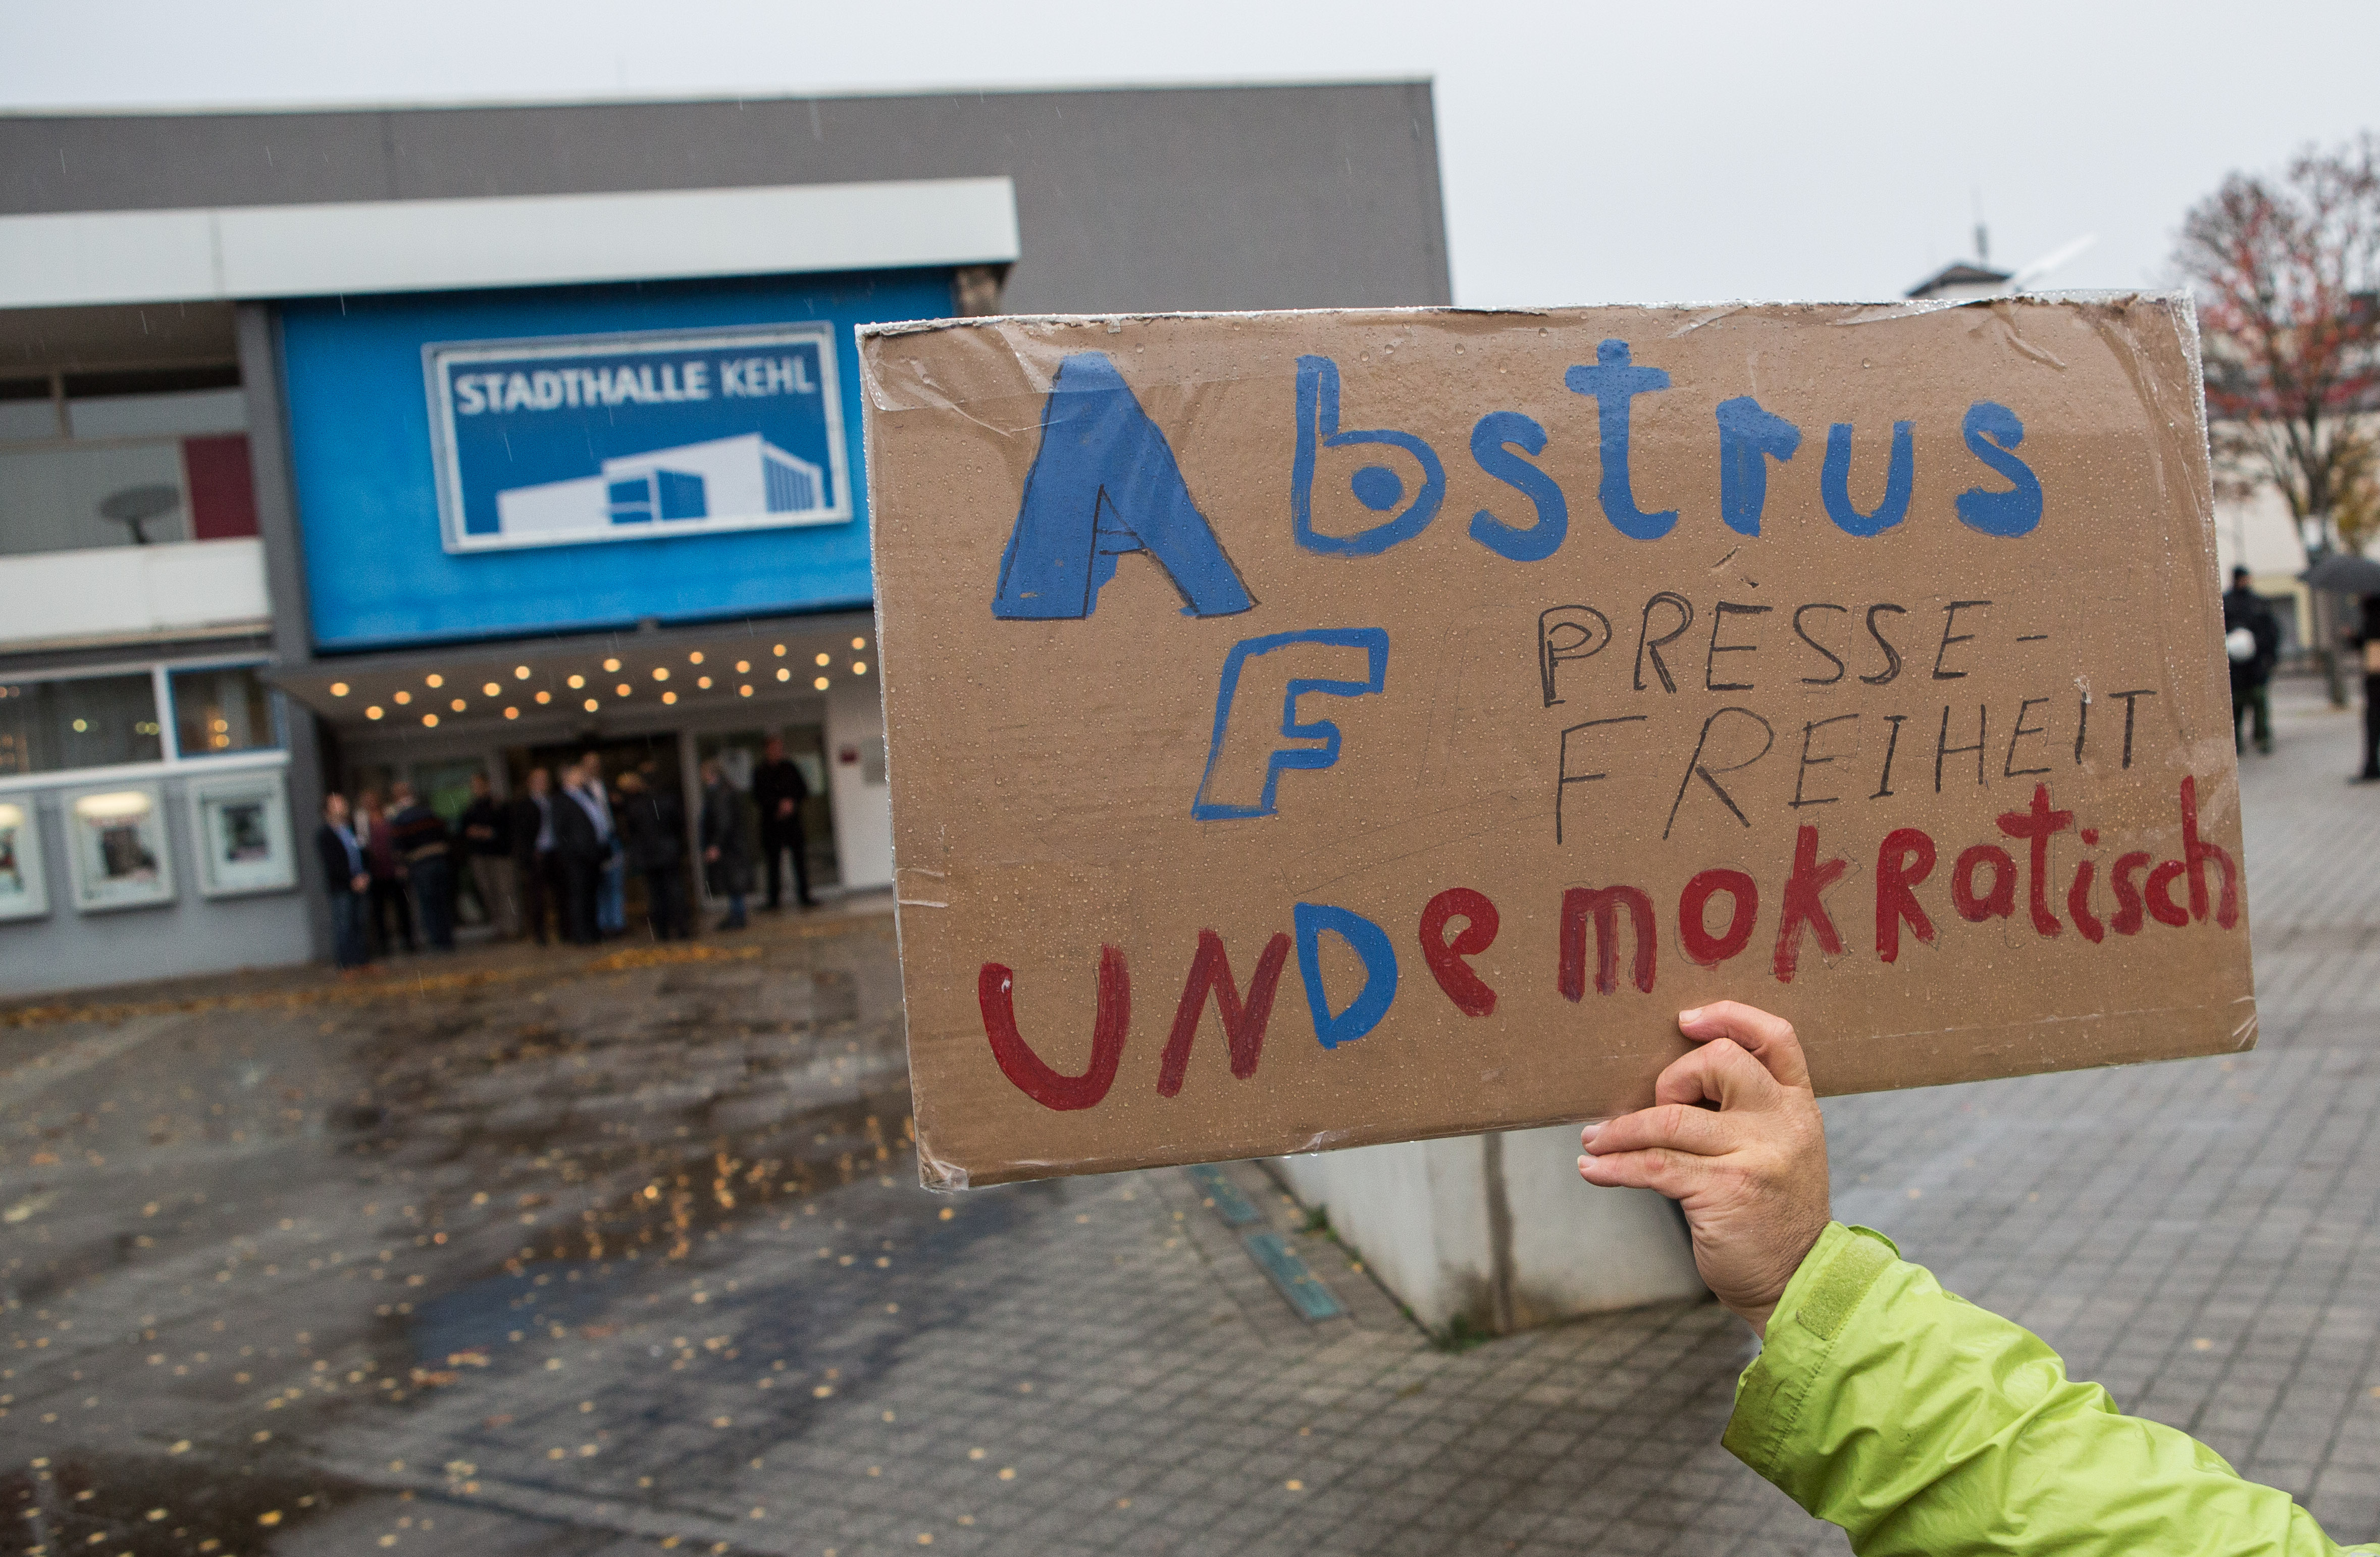 STADTHALLE KEHL
Abstrus
F PRESSE-
FREIHEIT
UNDemokRatisch